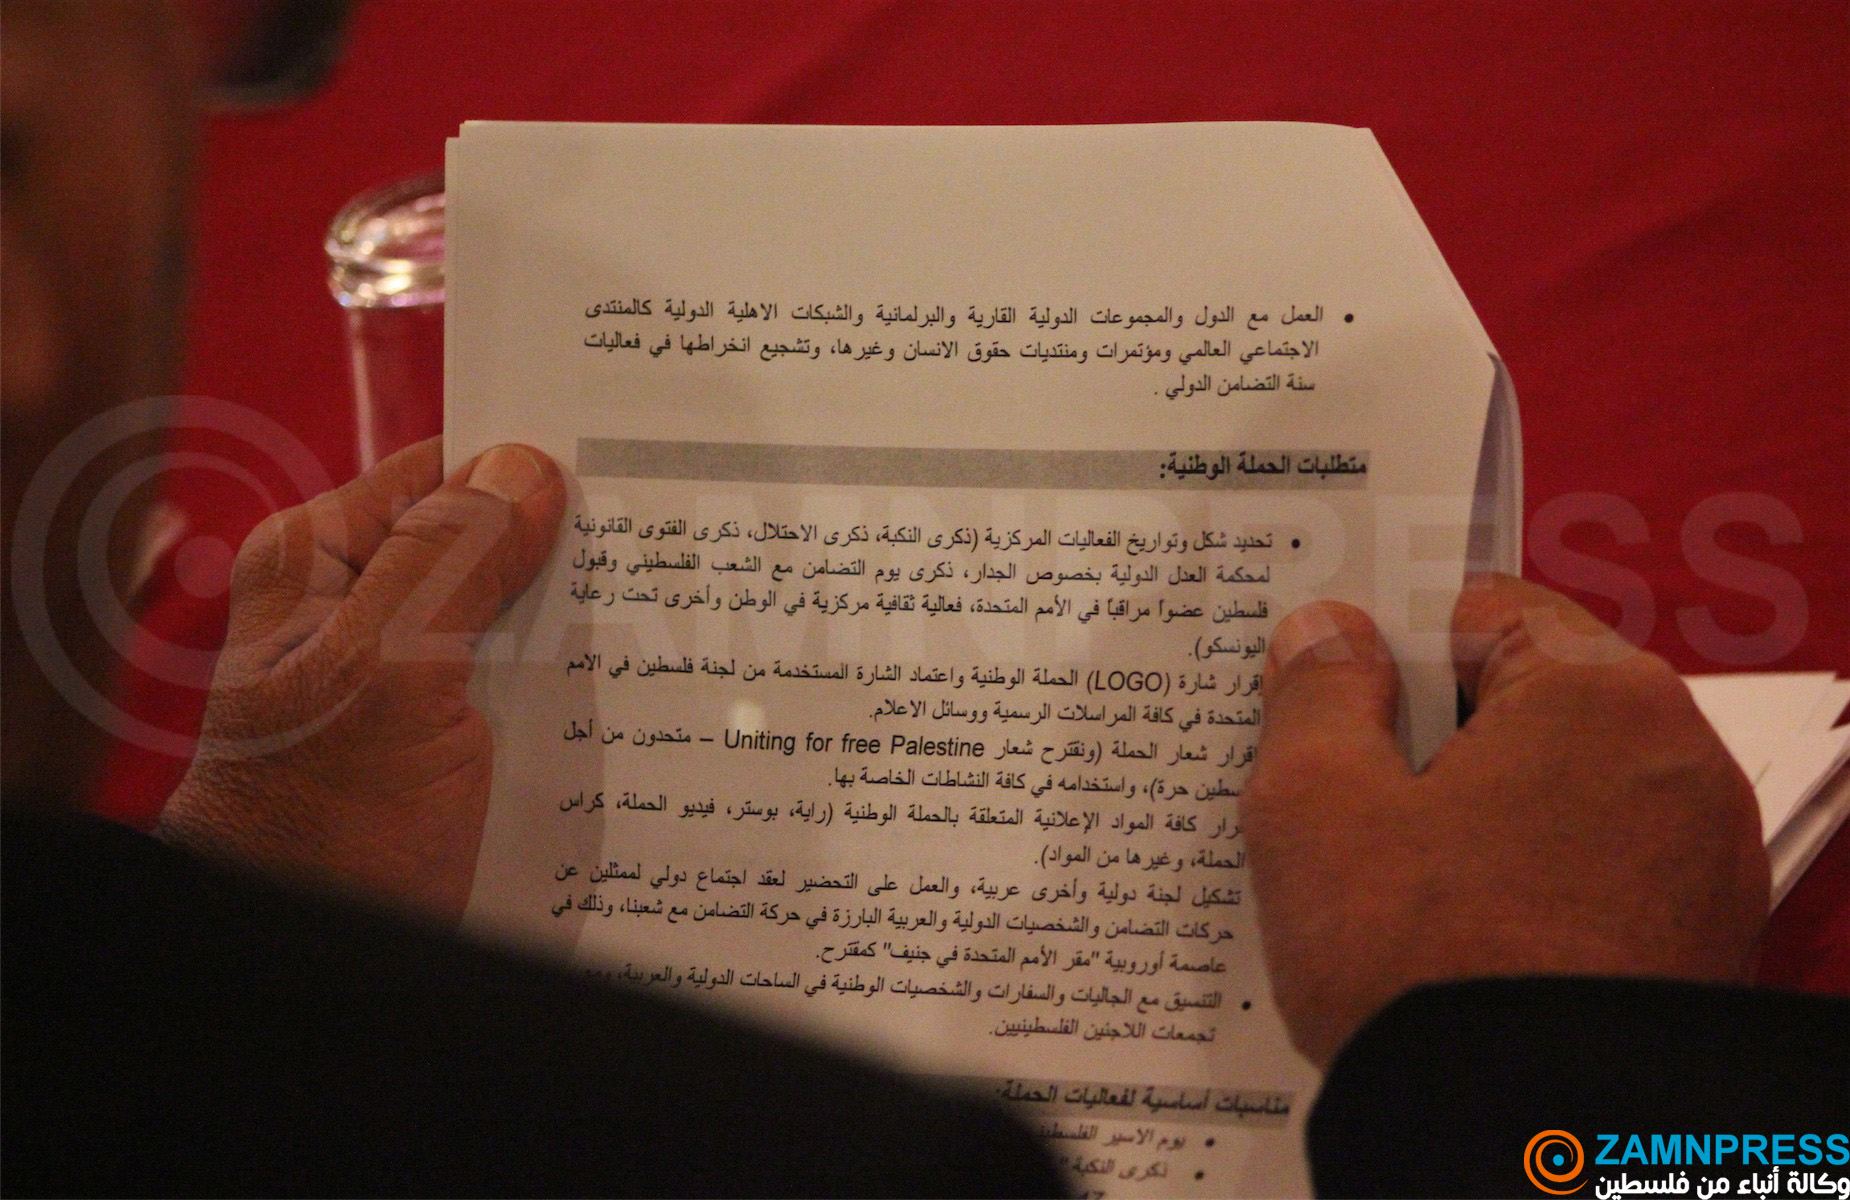 العمل مع الدول والمجموعات الدولية القارية والبرلمانية والشبكات الاهلية الدولية كالمنتدى
الاجتماعي العالمي ومؤتمرات ومنتديات حقوق الانسان وغيرها، وتشجيع انخراطها في فعاليات
سنة التضامن الدولي .
متطلبات الحملة الوطنية:
تحديد شكل وتواريخ الفعاليات المركزية (ذكرى النكبة، ذكرى الاحتلال، ذكرى الفتوى القانونية
لمحكمة العدل الدولية بخصوص الجدار، ذكرى يوم التضامن مع الشعب الفلسطيني وقبول
فلسطين عضواً مراقباً في الأمم المتحدة، فعالية ثقافية مركزية في الوطن وأخرى تحت رعاية
اليونسكو).
إقرار شارة (LOGO) الحملة الوطنية واعتماد الشارة المستخدمة من لجنة فلسطين في الامم
المتحدة في كافة المراسلات الرسمية ووسائل الاعلام.
إقرار شعار الحملة (ونقترح شعار Uniting for free Palestine – متحدون من أجل
سطين حرة)، واستخدامه في كافة النشاطات الخاصة بها.
رار كافة المواد الإعلانية المتعلقة بالحملة الوطنية (راية، بوستر، فيديو الحملة، كراس
الحملة، وغيرها من المواد).
تشكيل لجنة دولية وأخرى عربية، والعمل على التحضير لعقد اجتماع دولي لممثلين عن
حركات التضامن والشخصيات الدولية والعربية البارزة في حركة التضامن مع شعبنا، وذلك في
عاصمة أوروبية "مقر الأمم المتحدة في جنيف" كمقترح.
التنسيق مع الجاليات والسفارات والشخصيات الوطنية في الساحات الدولية والعربية،
تجمعات اللاجئين الفلسطينيين.
مناسبات أساسية لفعاليات الحملة:
يوم الاسير
ذكرى النكبة "
ZAMNPRESS
ZAMNPRESS
وكالة أنباء من فلسطين